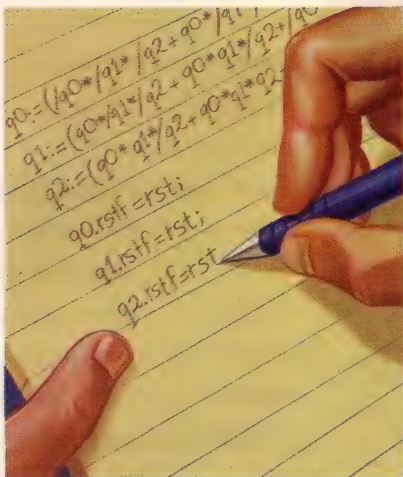 q0:=(/q0*/q1*/q2+q0*/q1*
q1:=(q0*/q1*/q2+q0*q1*/q2+/q0
q2:=(q0*q1*/q2+q0*q1*q2
q0.rstf=rst;
q1.rstf=rst;
q2.rstf=rst